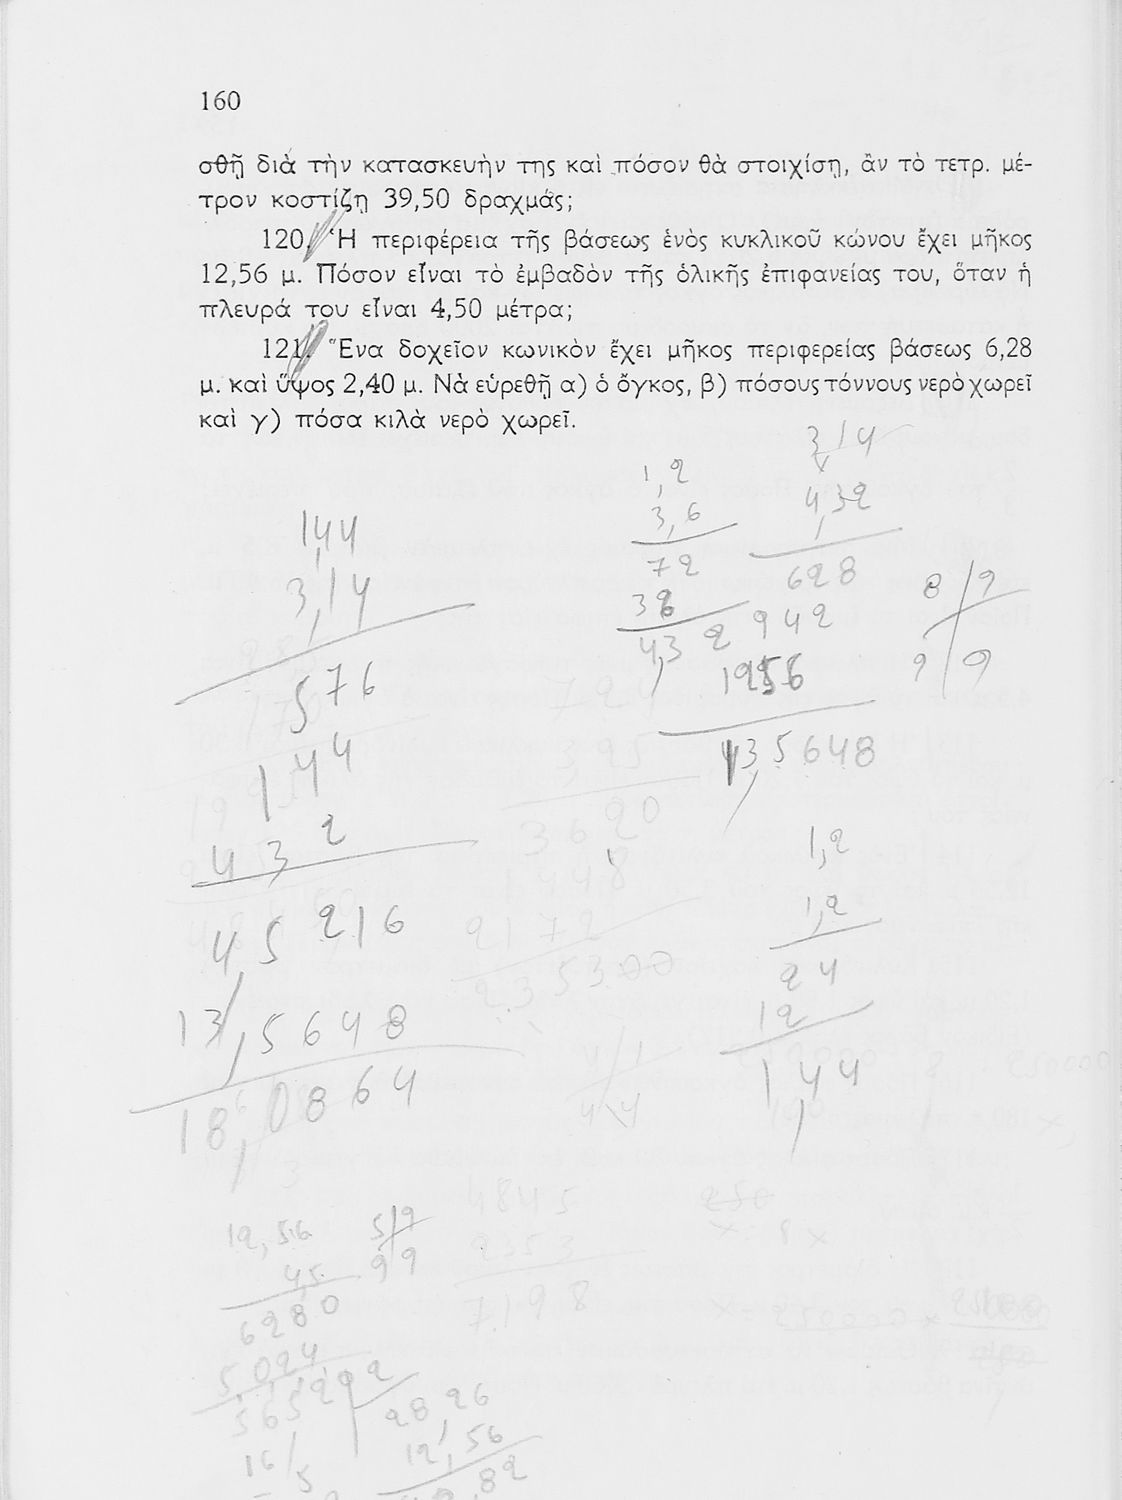 160
σθῇ διὰ τὴν κατασκευὴν της καὶ πόσον θὰ στοιχίσῃ, ἂν τὸ τετρ. μέ-
τρον κοστίζῃ 39,50 δραχμάς;
120. Ἡ περιφέρεια τῆς βάσεως ἑνὸς κυκλικοῦ κώνου ἔχει μῆκος
12,56 μ. Πόσον εἶναι τὸ ἐμβαδὸν τῆς ὁλικῆς ἐπιφανείας του, ὅταν ἡ
πλευρά του εἶναι 4,50 μέτρα;
121. Ἕνα δοχεῖον κωνικὸν ἔχει μῆκος περιφερείας βάσεως 6,28
μ. καὶ ὕψος 2,40 μ. Νὰ εὑρεθῇ α) ὁ ὄγκος, β) πόσους τόννους νερὸ χωρεῖ
καὶ γ) πόσα κιλὰ νερὸ χωρεῖ.
1,44
3,14
576
144
432
4,5216
13,5648
18,0864
1,2
3,6
72
36
4,32
3,14
4,32
628
942
1256
13,5648
8 9
9 9
1,2
1,2
24
12
1,44
3620
1448
2172
235300
4845
2353
7198
12,56
4,5
6280
5024
5 9
9 9
28,26
12,56